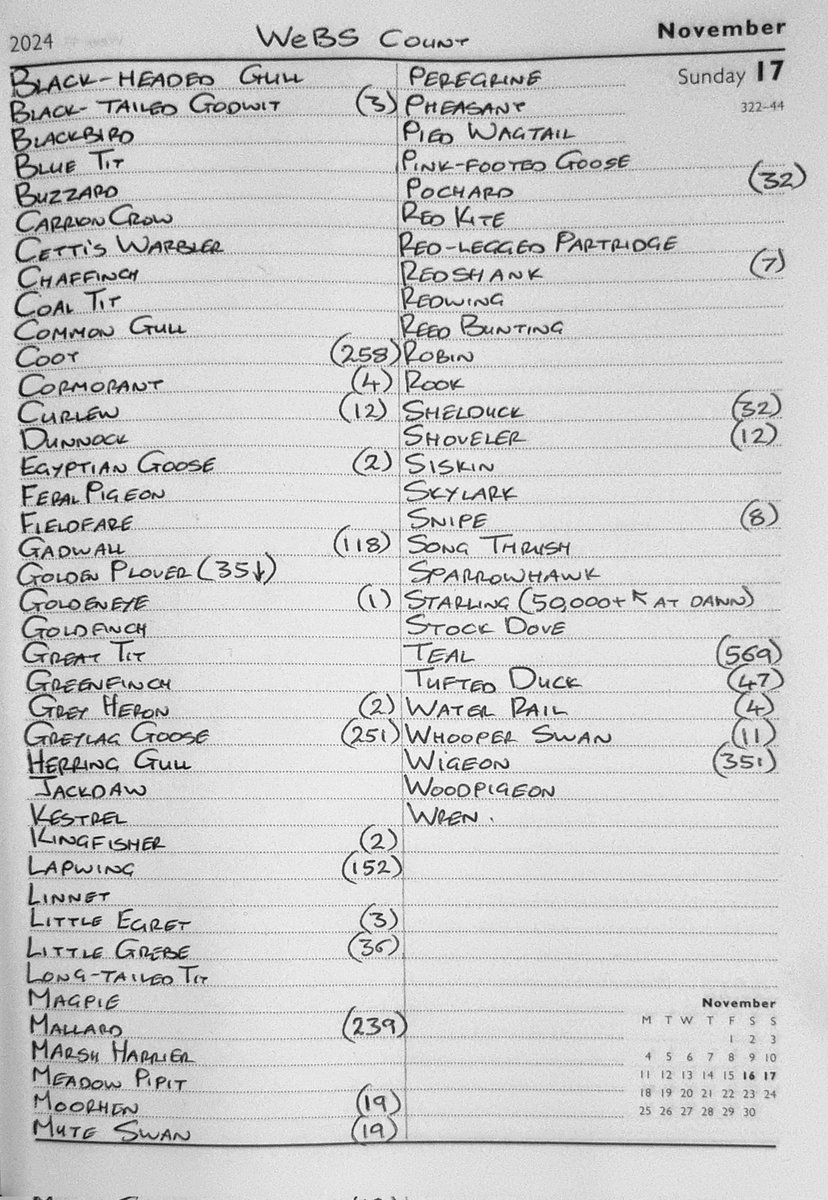 2024 WeBS COUNT November
Sunday 17
322–44
BLACK-HEADED GULL
BLACK-TAILED GODWIT (3)
BLACKBIRD
BLUE TIT
BUZZARD
CARRION CROW
CETTI'S WARBLER
CHAFFINCH
COAL TIT
COMMON GULL
COOT (258)
CORMORANT (4)
CURLEW (12)
DUNNOCK
EGYPTIAN GOOSE (2)
FERAL PIGEON
FIELDFARE
GADWALL (118)
GOLDEN PLOVER (35↓)
GOLDENEYE (1)
GOLDFINCH
GREAT TIT
GREENFINCH
GREY HERON (2)
GREYLAG GOOSE (251)
HERRING GULL
JACKDAW
KESTREL
KINGFISHER (2)
LAPWING (152)
LINNET
LITTLE EGRET (3)
LITTLE GREBE (36)
LONG-TAILED TIT
MAGPIE
MALLARD (239)
MARSH HARRIER
MEADOW PIPIT
MOORHEN (19)
MUTE SWAN (19)
PEREGRINE
PHEASANT
PIED WAGTAIL
PINK-FOOTED GOOSE
POCHARD (32)
RED KITE
RED-LEGGED PARTRIDGE
REDSHANK (7)
REDWING
REED BUNTING
ROBIN
ROOK
SHELDUCK (32)
SHOVELER (12)
SISKIN
SKYLARK
SNIPE (8)
SONG THRUSH
SPARROWHAWK
STARLING (50,000+ ↖ AT DAWN)
STOCK DOVE
TEAL (569)
TUFTED DUCK (47)
WATER RAIL (4)
WHOOPER SWAN (11)
WIGEON (351)
WOODPIGEON
WREN.
November
M T W T F S S
1 2 3
4 5 6 7 8 9 10
11 12 13 14 15 16 17
18 19 20 21 22 23 24
25 26 27 28 29 30